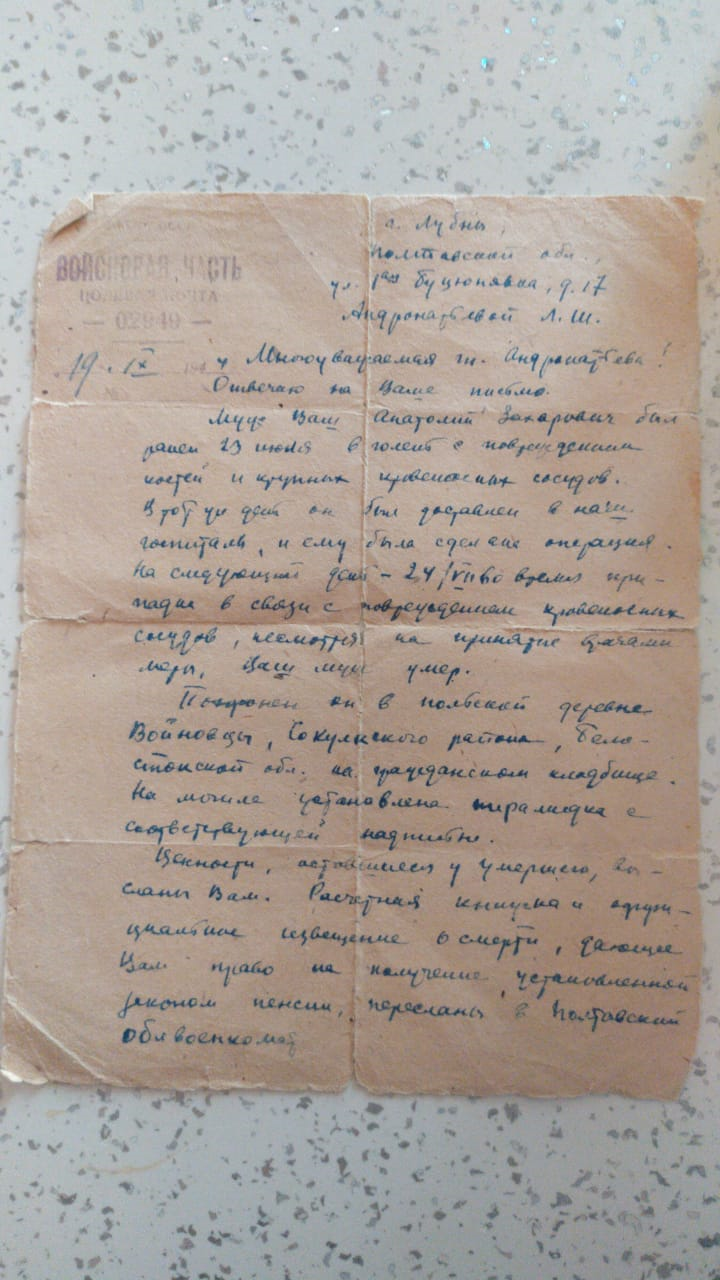 г. Лубны,
Полтавской обл.,
ВОЙСКОВАЯ ЧАСТЬ
ПОЛЕВАЯ ПОЧТА
— 02949 —
ул. Буцюнявка, д. 17
Л. Ш.
19. IX 194 4
№
Многоуважаемая гн.
Отвечаю на Ваше письмо.
Муж Ваш Анатолий Захарович был
ранен 23 июля в голень с повреждением
костей и крупных кровеносных сосудов.
В тот же день он был доставлен в наш
госпиталь, и ему была сделана операция.
На следующий день – 24/VII во время при-
падка в связи с повреждением кровеносных
сосудов, несмотря на принятые врачами
меры, Ваш муж умер.
Похоронен он в польской деревне
Войновцы, Сокульского района, Бело-
стокской обл. на гражданском кладбище.
На могиле установлена пирамидка с
соответствующей надписью.
Ценности, оставшиеся у умершего, вы-
сланы Вам. Расчетная книжка и офици-
альное извещение о смерти, дающее
Вам право на получение установленной
законом пенсии, пересланы в Полтавский
облвоенкомат